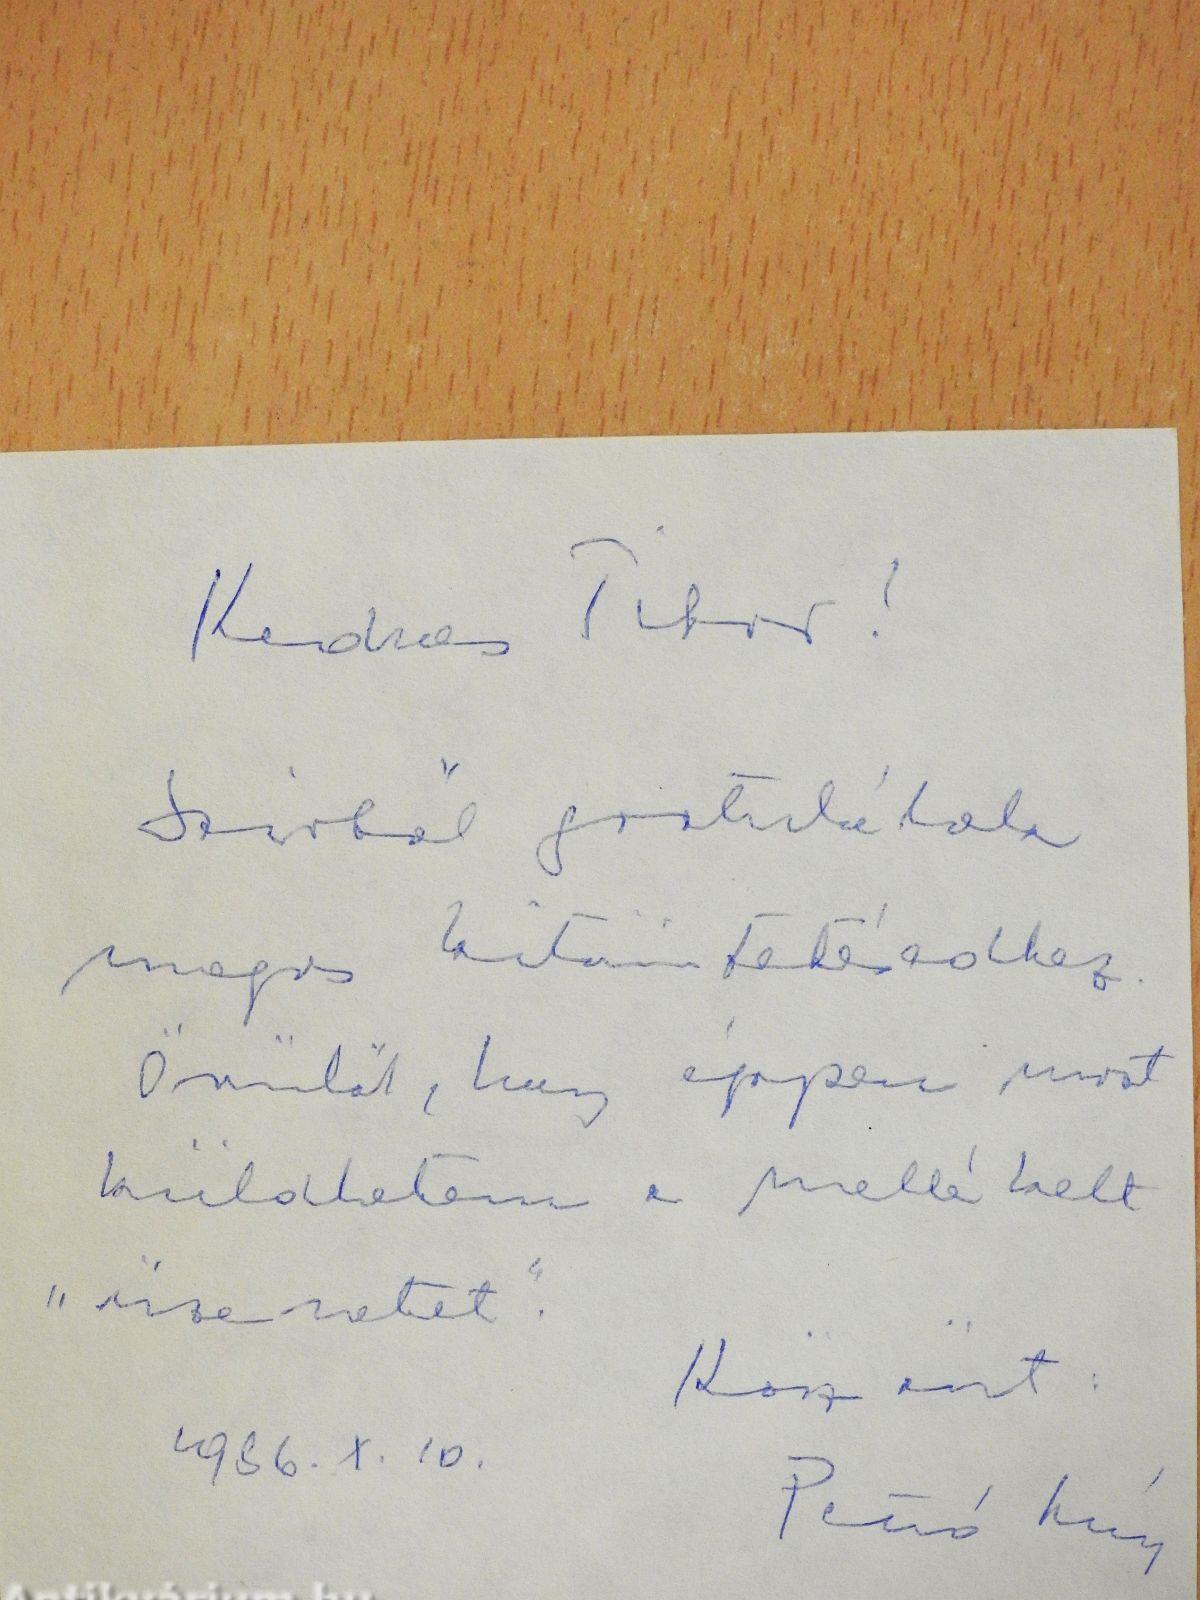 Kedves Tibor!
Szívből gratulálok
magas kitüntetésedhez.
Örülök, hogy éppen most
küldhetem a mellékelt
„üzenetet".
Köszönt:
1986. X. 10.
Antikvárium.hu